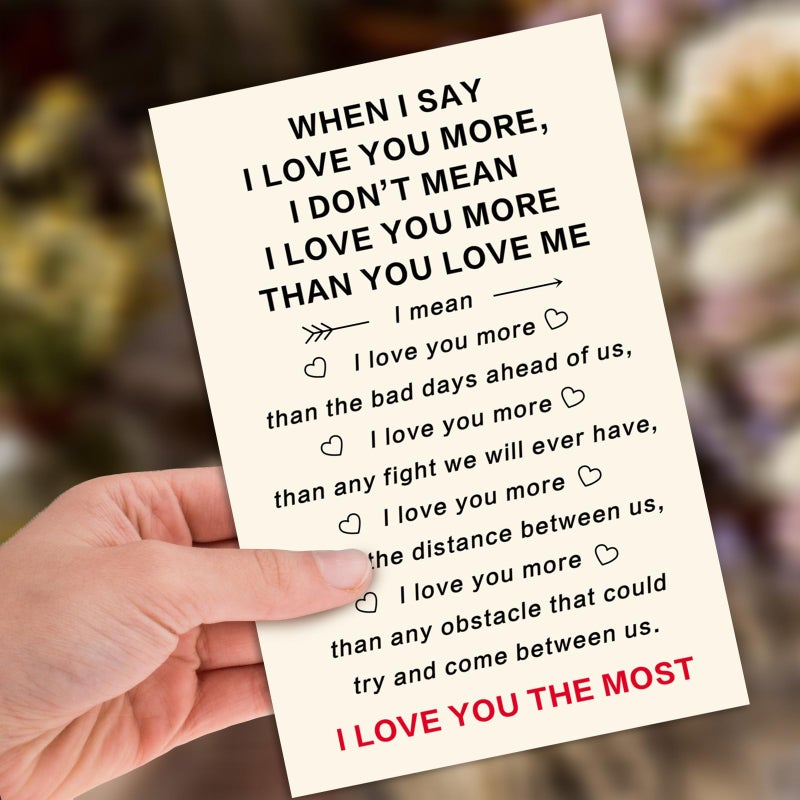 WHEN I SAY
I LOVE YOU MORE,
I DON'T MEAN
I LOVE YOU MORE
THAN YOU LOVE ME
I mean
I love you more
than the bad days ahead of us,
I love you more
than any fight we will ever have,
I love you more
the distance between us,
I love you more
than any obstacle that could
try and come between us.
I LOVE YOU THE MOST